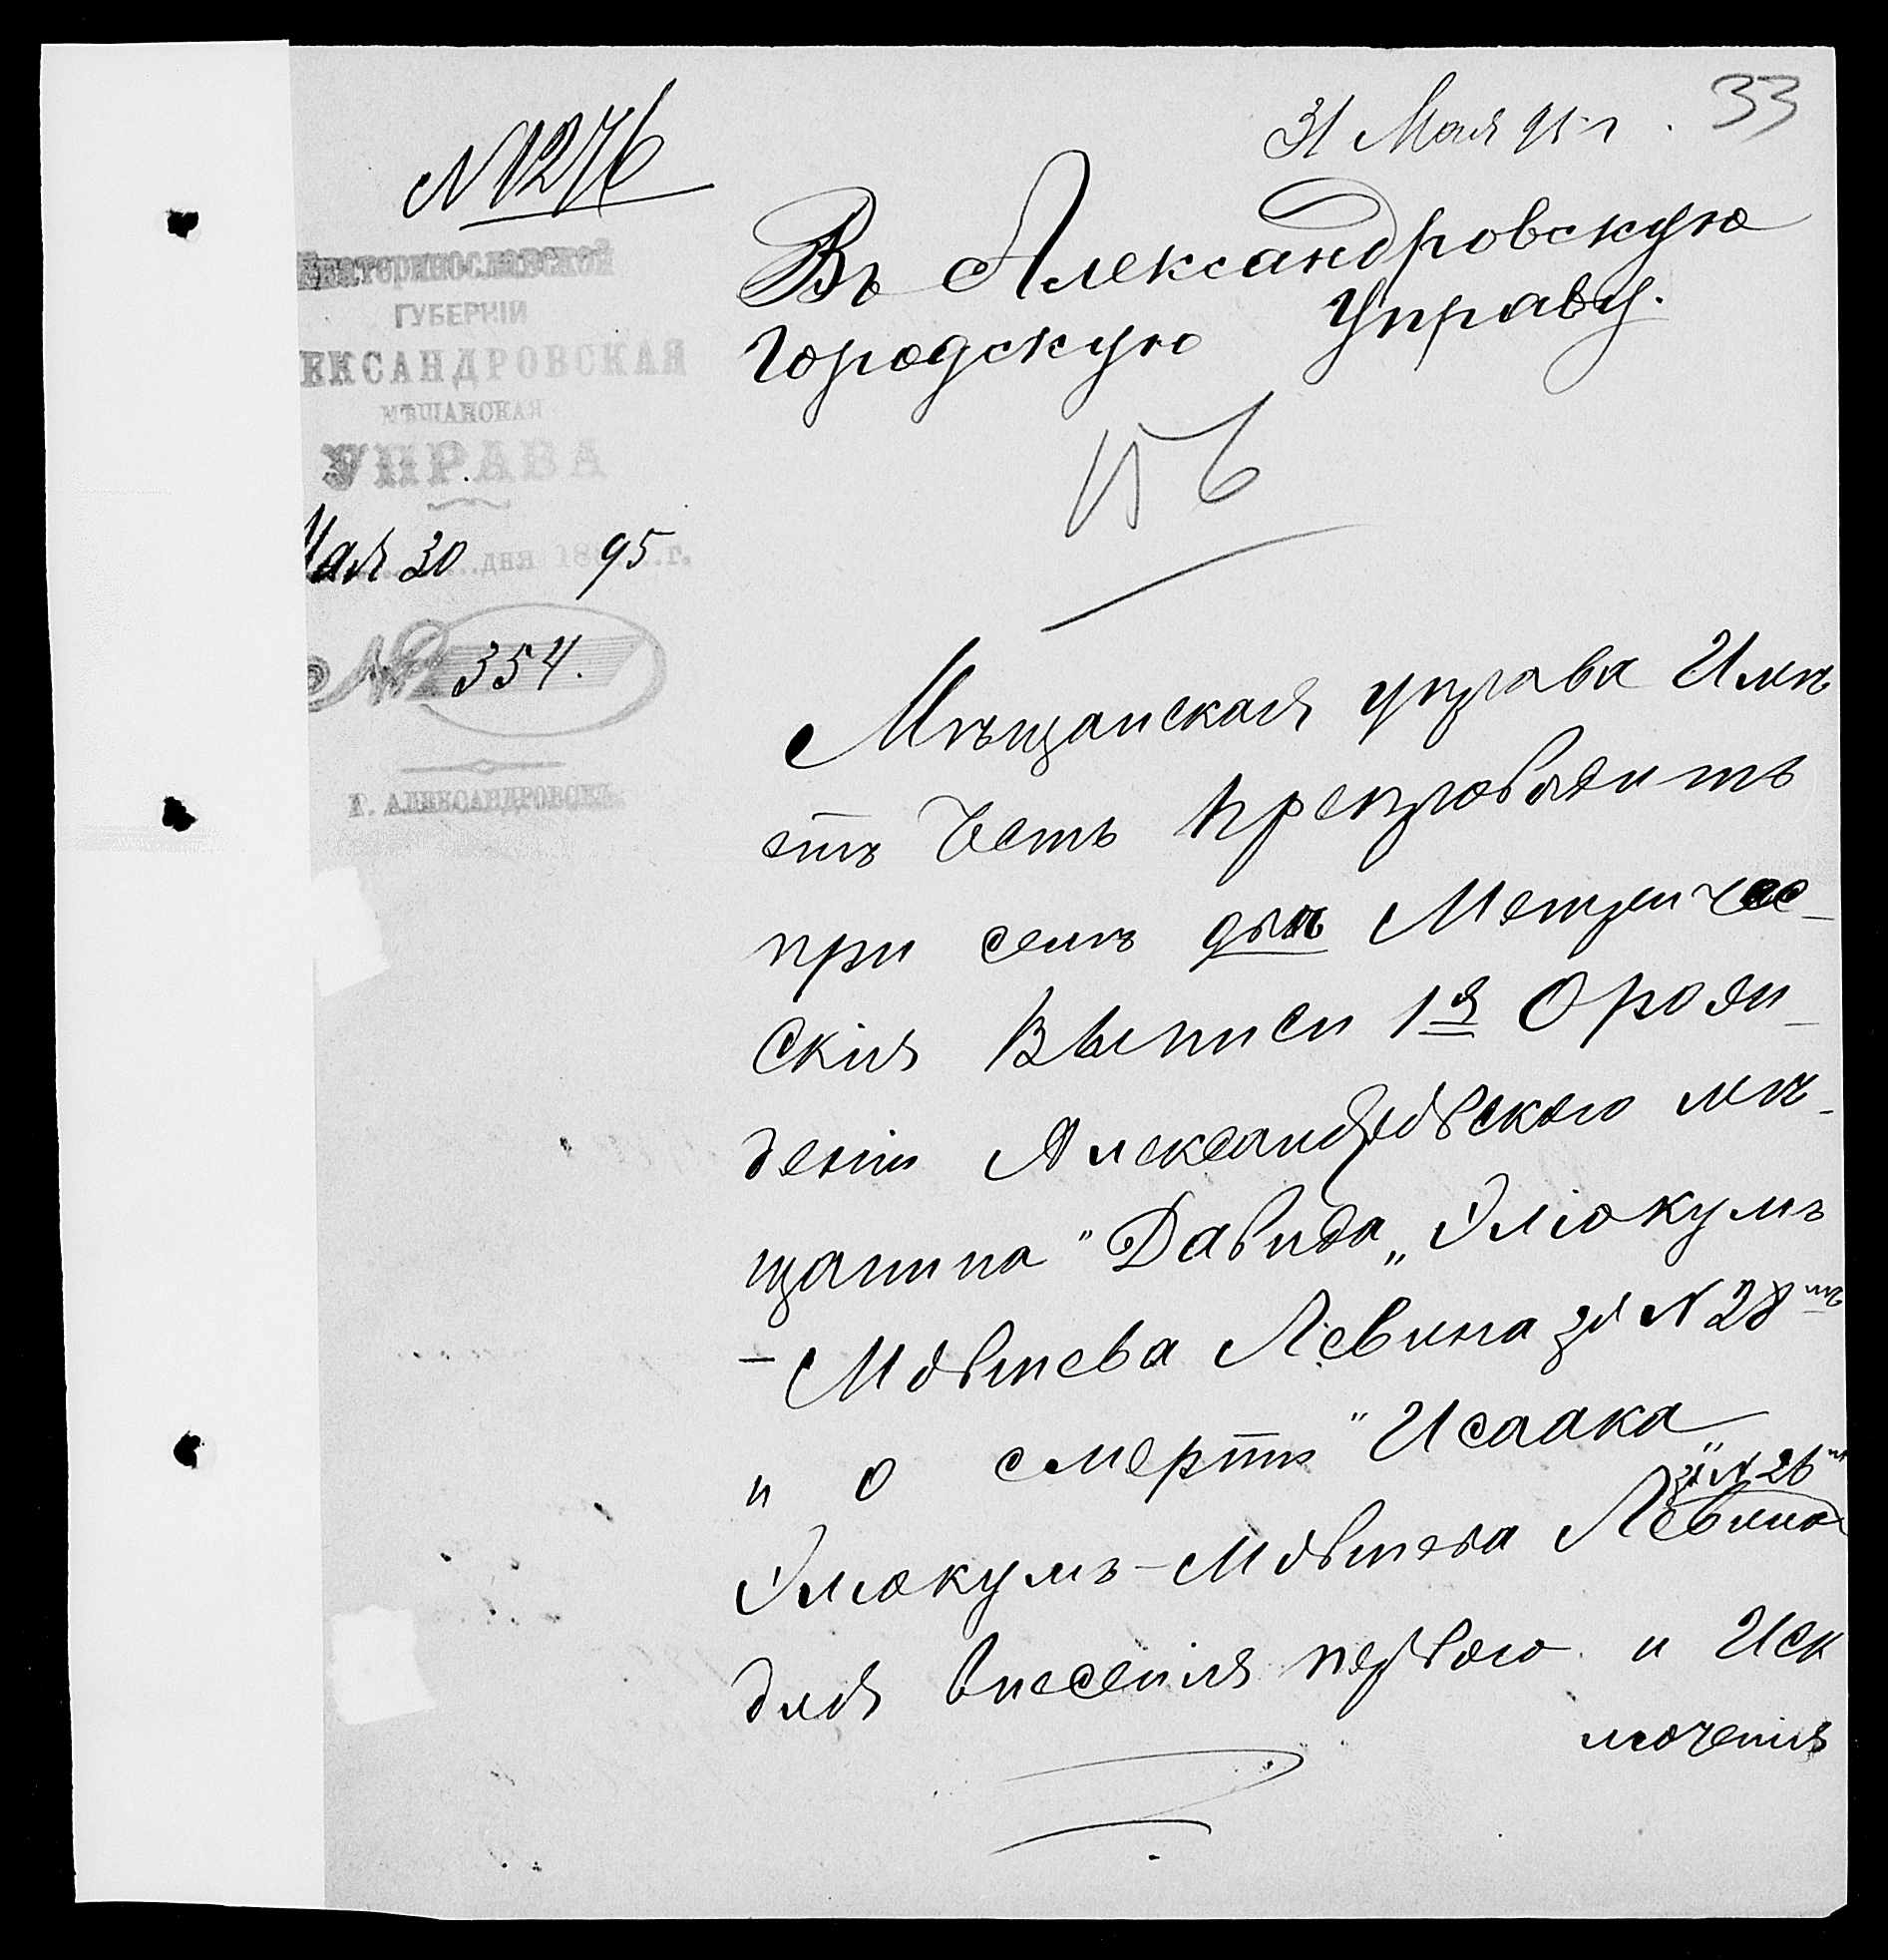 31 Мая 95 г.
33
N 1276
Екатеринославской
ГУБЕРНІИ
ЕКСАНДРОВСКАЯ
МѢЩАНСКАЯ
УПРАВА
Мая 30 дня 1895 г.
№ 354.
Г. АЛЕКСАНДРОВСКЪ
Въ Александровскую
Городскую Управу.
Мѣщанская управа Имѣ
етъ Честь препроводить
при семъ двѣ Метричес-
скія Выписи 1я О рожи-
деніи Александровского мѣ-
щанина "Давида„ Элюкумъ
- Мовшева Левина за N 28мъ
и о смерти "Исаака"
за N 26мъ
Элюкумъ-Мовшева Левина
для внесенія первого и Иск
люченія